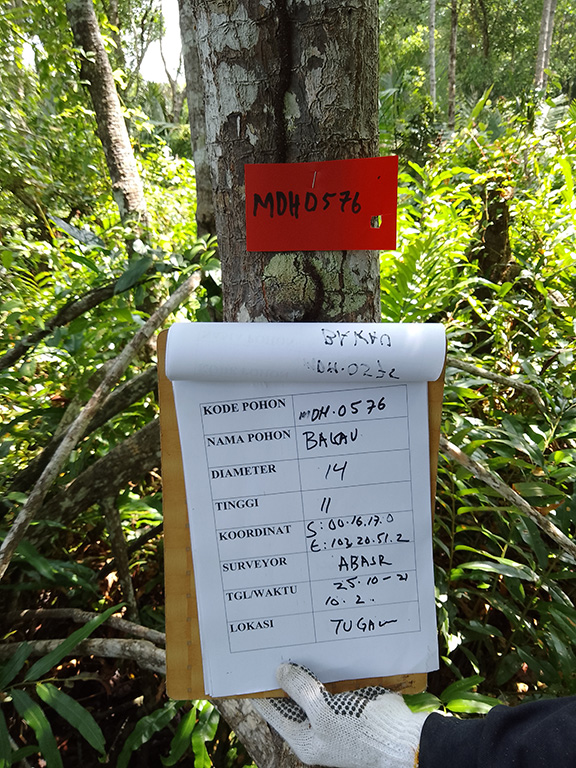 MDH0576
KODE POHON MDH.0576
NAMA POHON BAKAU
DIAMETER 14
TINGGI 11
KOORDINAT S: 00.16.17.0
E: 103.20.51.2
SURVEYOR
TGL/WAKTU 25.10-21
10.2.
LOKASI